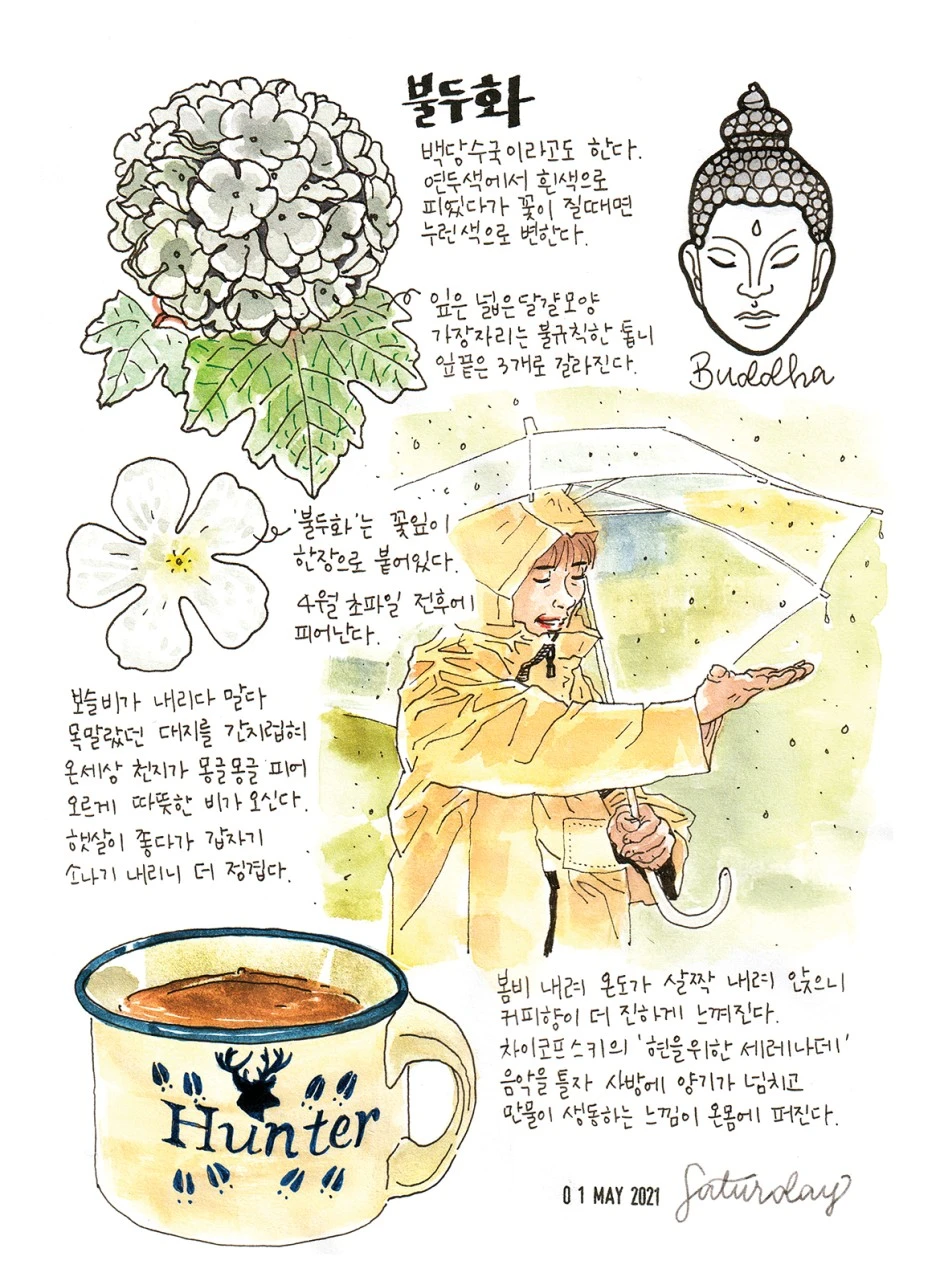 불두화
백당수국이라고도 한다.
연두색에서 흰색으로
피웠다가 꽃이 질때면
누런색으로 변한다.
잎은 넓은달걀모양
가장자리는 불규칙한 톱니
잎끝은 3개로 갈라진다.
Buddha
'불두화'는 꽃잎이
한장으로 붙어있다.
4월 초파일 전후에
피어난다.
보슬비가 내리다 말다
목말랐던 대지를 간지럽혀
온세상 천지가 몽글몽글 피어
오르게 따뜻한 비가 오신다.
햇살이 좋다가 갑자기
소나기 내리니 더 정겹다.
Hunter
봄비 내려 온도가 살짝 내려 앉으니
커피향이 더 진하게 느껴진다.
차이코프스키의 '현을위한 세레나데'
음악을 틀자 사방에 양기가 넘치고
만물이 생동하는 느낌이 온몸에 퍼진다.
01 MAY 2021 Saturday